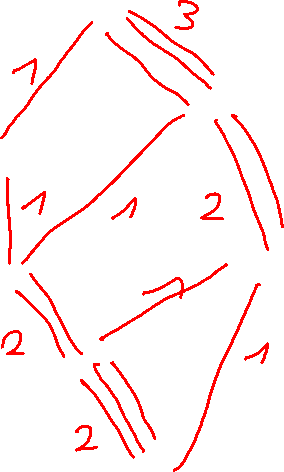 3
1
1
1
2
1
2
1
2